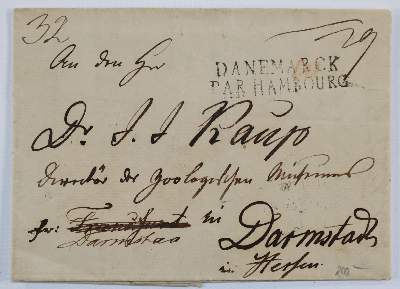 32
An den Hr
DANEMARCK
PAR HAMBOURG
Dr. J. J Kaup
Director des Zoologischen Museums
fr: Frankfurt in
Darmstad Darmstadt
in Hessen